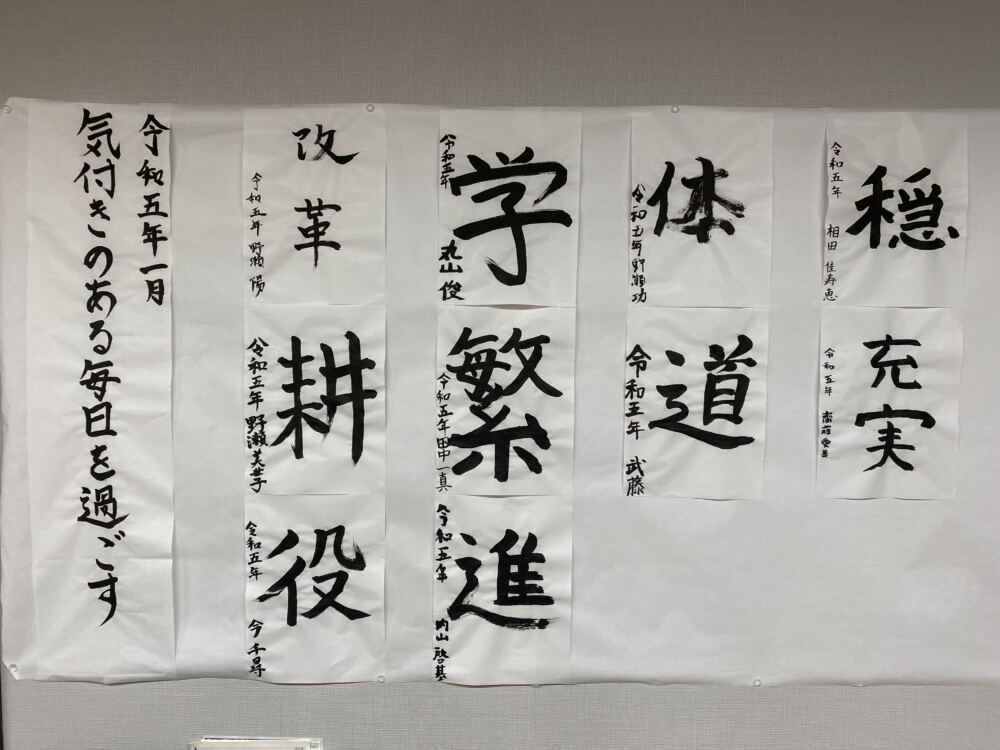 穏
令和五年 相田 佳寿恵
充実
令和五年 齋藤
体
令和五年 野瀬功
道
令和五年 武藤
学
令和五年 丸山 俊
繁
令和五年 田中一真
進
令和五年 内山 啓基
改革
令和五年 野瀬 陽
耕
令和五年 野瀬美世子
役
令和五年 今 千尋
令和五年一月
気付きのある毎日を過ごす